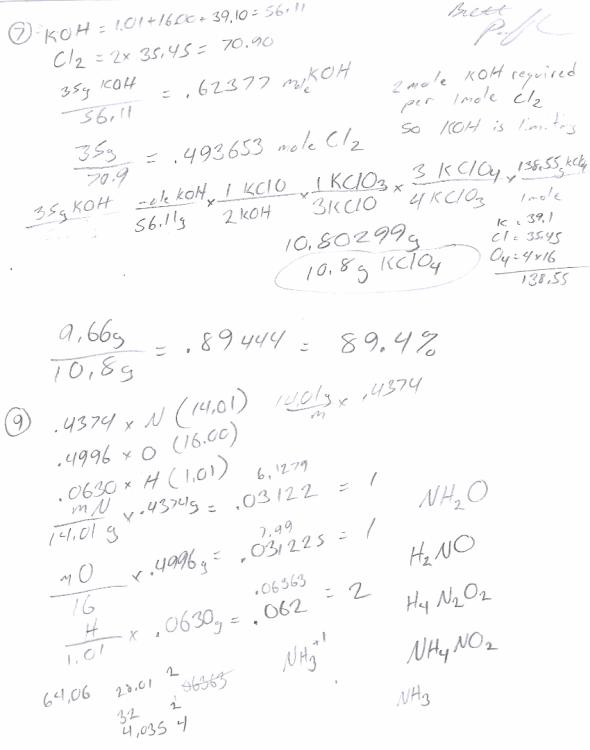 ⑦ KOH = 1.01+16.00+39.10 = 56.11
Brett
Cl2 = 2 x 35.45 = 70.90
35g KOH / 56.11 = .62377 mole KOH
2 mole KOH required
per 1 mole Cl2
so KOH is limiting
35g / 70.9 = .493653 mole Cl2
35g KOH mole KOH / 56.11g x 1 KClO / 2 KOH x 1 KClO3 / 3 KClO x 3 KClO4 / 4 KClO3 x 138.55g KClO4 / 1 mole
K = 39.1
Cl = 35.45
O4 = 4x16
138.55
10.80299g
10.8g KClO4
9.66g / 10.8g = .89444 = 89.4%
⑨ .4374 x N (14.01) 14.01g / m x .4374
.4996 x O (16.00)
.0630 x H (1.01)
6.1279
mN / 14.01 g x .4374g = .03122 = 1
NH2O
7.99
mO / 16 x .4996g = .031225 = 1
H2NO
.06363
H / 1.01 x .0630g = .062 = 2
H4N2O2
NH3+1
NH4NO2
64.06 28.01 2 06363
32 2
4.035 4
NH3